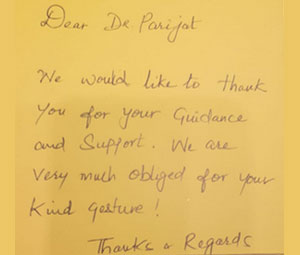 Dear Dr. Parijat
We would like to thank
You for your Guidance
and Support. We are
very much obliged for your
Kind gesture!
Thanks & Regards